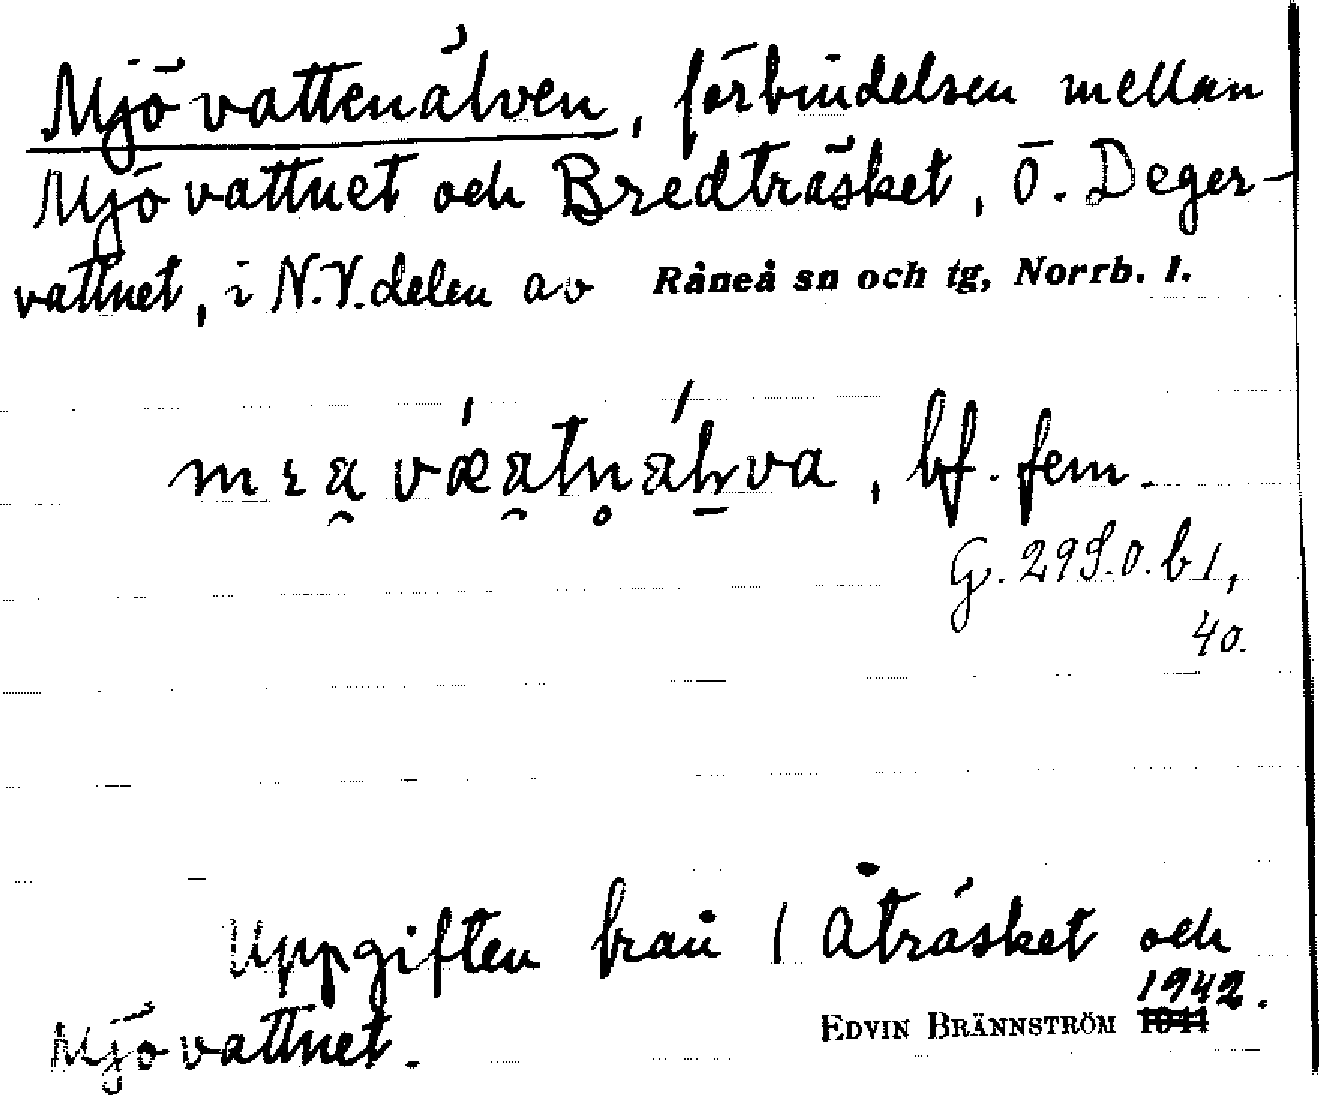 Mjövattenälven, förbindelsen mellan
Mjövattnet och Bredträsket, ö. Deger-
vattnet, i N.V. delen av Råneå sn och tg, Norrb. l.
bf. fem.
40.
Uppgiften från Åträsket och
Mjövattnet.
1942.
EDVIN BRÄNNSTRÖM 1941